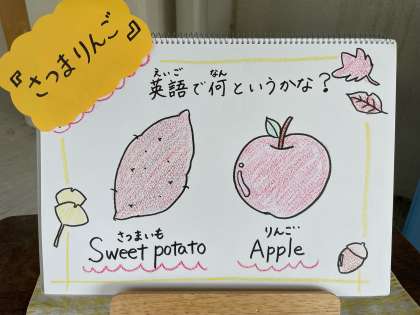 『さつまりんご』
えいご なん
英語で何というかな？
さつまいも
Sweet potato
りんご
Apple